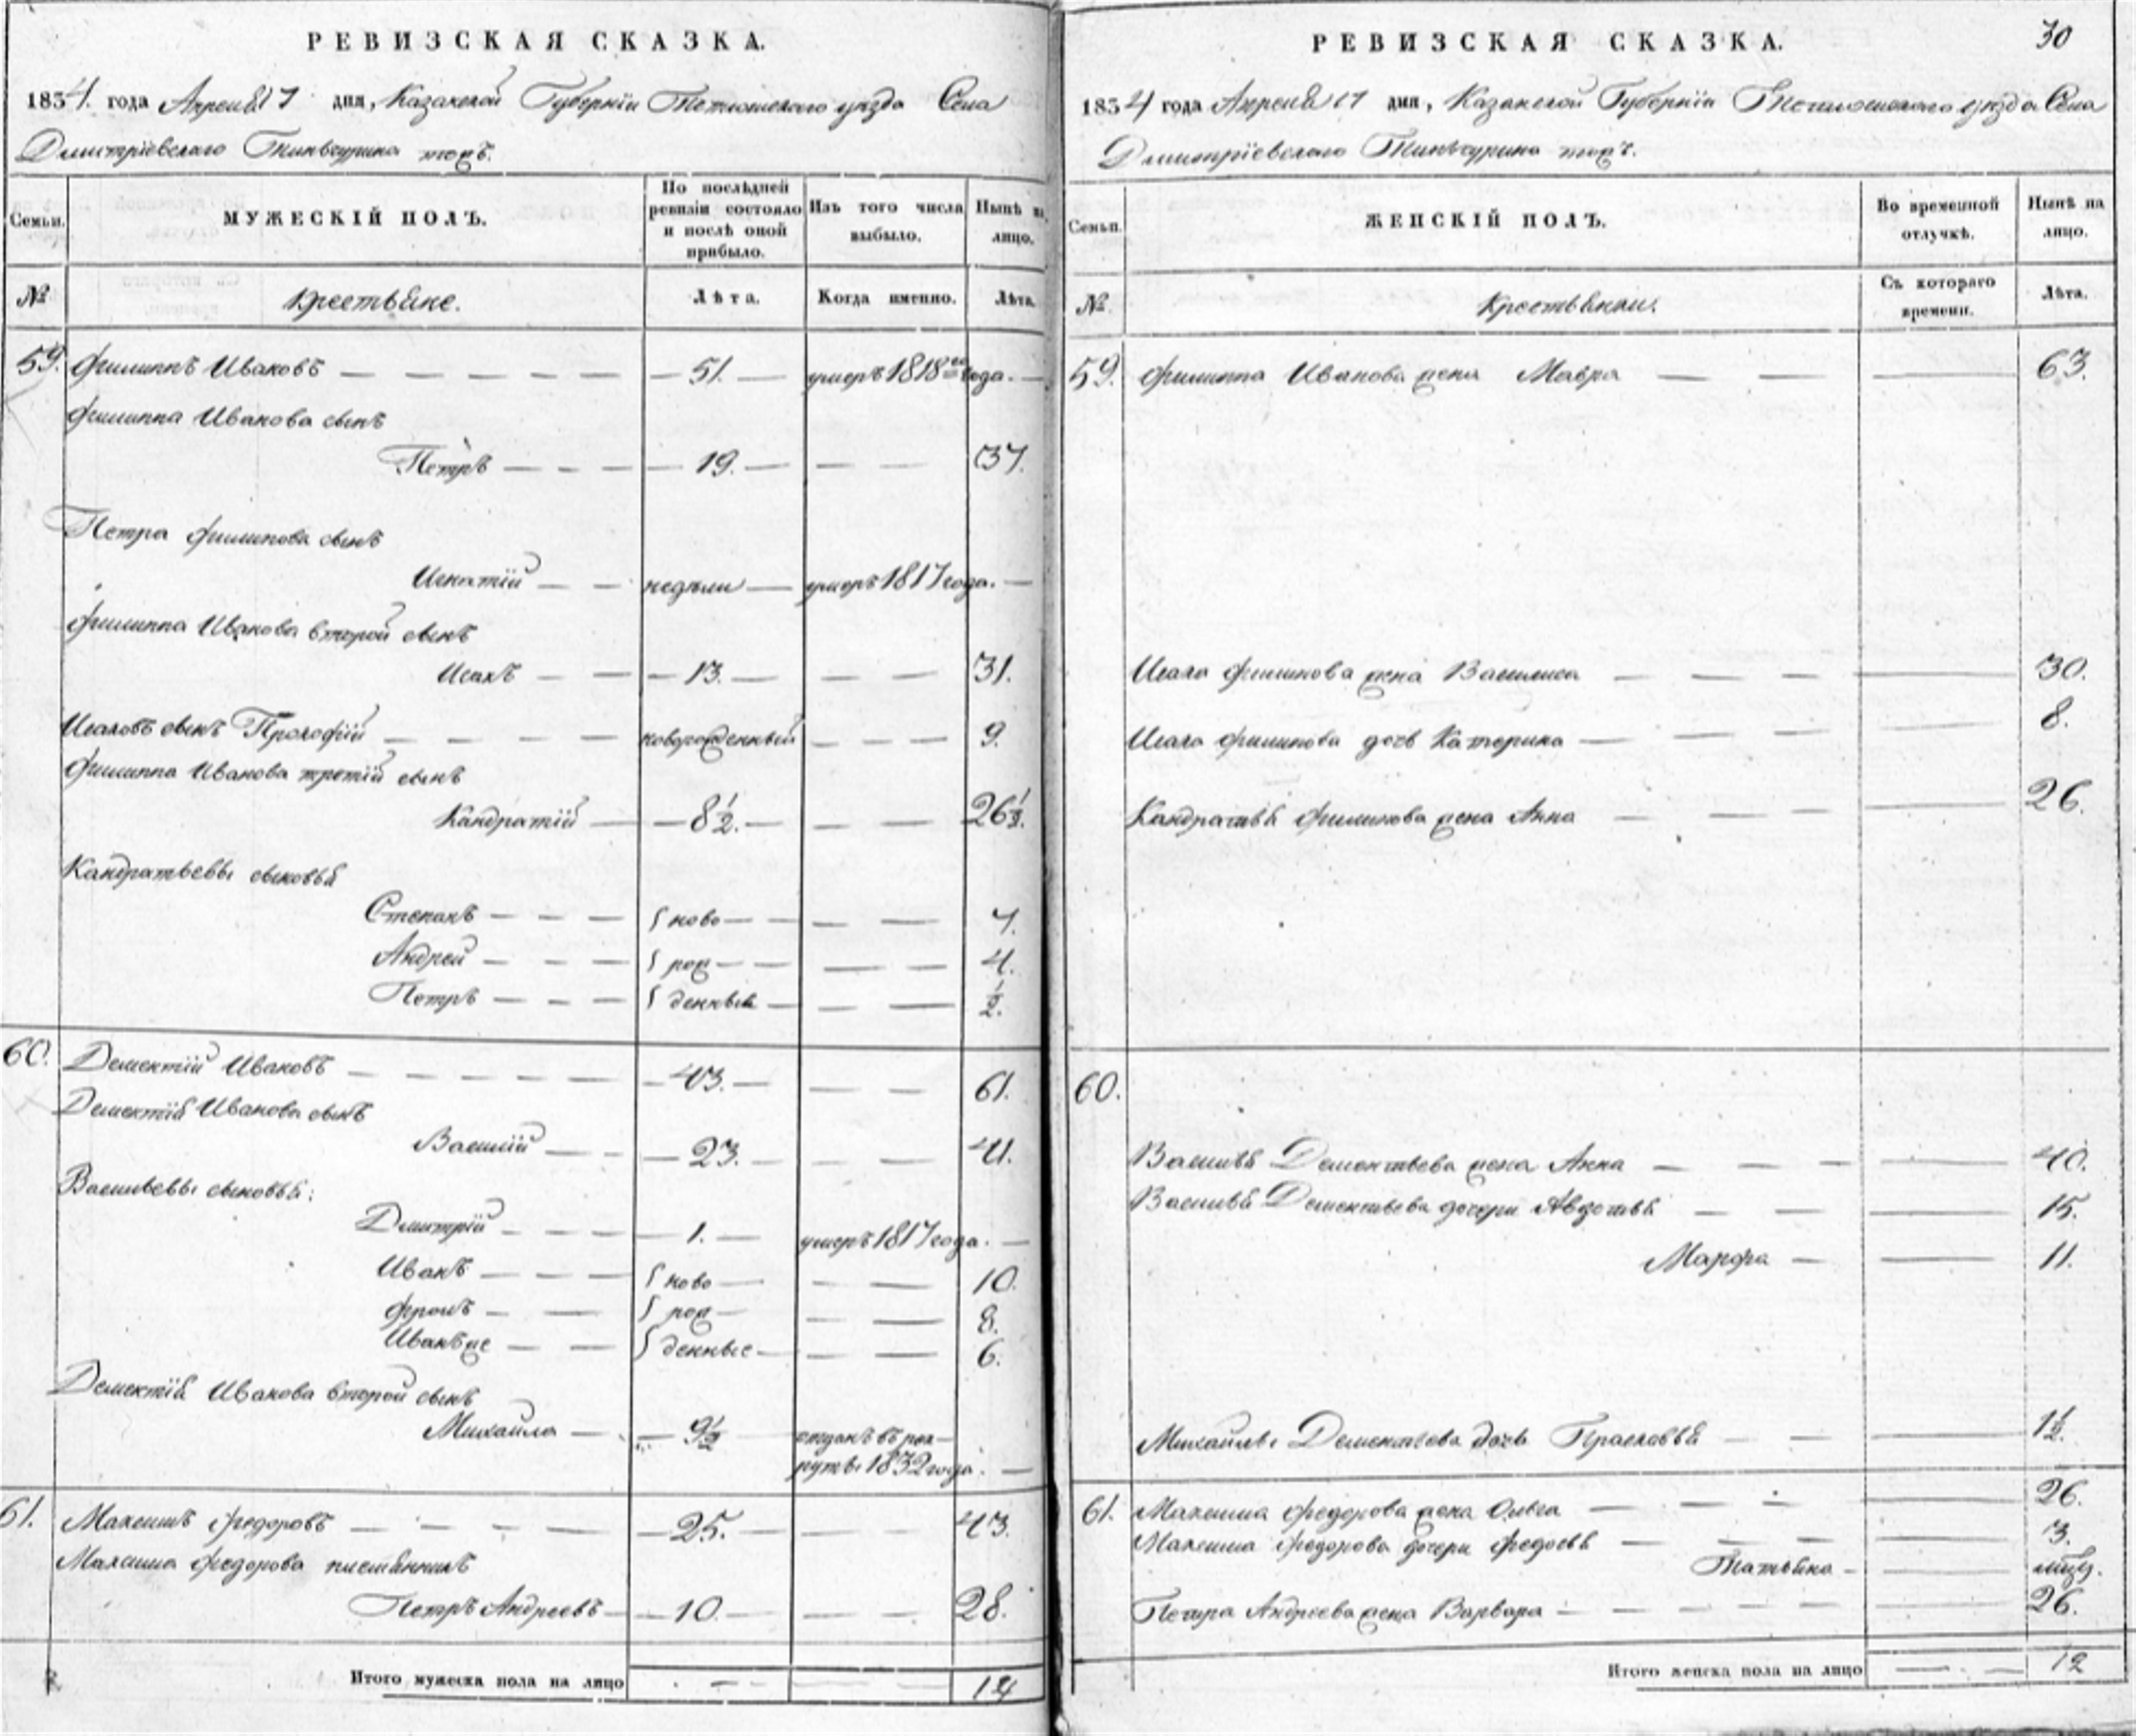 РЕВИЗСКАЯ СКАЗКА.
1834. года Апреля 17 дня, Казанской Губернии Тетюшскаго уезда Села
Дмитріевскаго Тинчурина тожъ.
Семьи.
МУЖЕСКІЙ ПОЛЪ.
По послѣдней ревизіи состояло и послѣ оной прибыло.
Изъ того числа выбыло.
Нынѣ на лицо.
№
Крестьяне.
Лѣта.
Когда именно.
Лѣта.
59. Филиппъ Ивановъ — 51. — умеръ 1818го года. —
Филиппа Иванова сынъ
Петръ — 19. — — 37.
Петра Филипова сынъ
Игнатій — недѣли — умеръ 1817 года. —
Филиппа Иванова второй сынъ
Исакъ — 13. — — 31.
Исаковъ сынъ Прокофій — новорожденный — — 9.
Филиппа Иванова третій сынъ
Кандратій — 8 1/2. — — 26 1/2.
Кандратьевы сыновья
Степанъ — ново — — 7.
Андрей — рож — — 4.
Петръ — денные — — 1/2.
60. Дементій Ивановъ — 43. — — 61.
Дементія Иванова сынъ
Василій — 23. — — 41.
Васильевы сыновья:
Дмитрій — 1. — умеръ 1817 года. —
Иванъ — ново — — 10.
Фролъ — рож — — 8.
Иванъ же — денные — — 6.
Дементія Иванова второй сынъ
Михайла — 9 1/2 отданъ въ рек-
руты 1832 года. —
61. Максимъ Федоровъ — 25. — — 43.
Максима Федорова племянникъ
Петръ Андреевъ — 10. — — 28.
Итого мужеска пола на лицо — — 14
РЕВИЗСКАЯ СКАЗКА.
30
1834 года Апреля 17 дня, Казанской Губерніи Тетюшскаго уезда Села
Дмитріевскаго Тинчурина тожъ.
Семьи.
ЖЕНСКІЙ ПОЛЪ.
Во временной отлучкѣ.
Нынѣ на лицо.
№.
Крестьянки.
Съ котораго времени.
Лѣта.
59. Филиппа Иванова жена Мавра — — 63.
Исака Филипова жена Василиса — — 30.
Исака Филипова дочь Катерина — — 8.
Кандратья Филипова жена Анна — — 26.
60.
Василья Дементьева жена Анна — — 40.
Василья Дементьева дочери Авдотья — — 15.
Марфа — — 11.
Михайлы Дементьева дочь Прасковья — — 1 1/2.
61. Максима Федорова жена Ольга — — 26.
Максима Федорова дочери Федосья — — 3.
Татьяна —
Петра Андреева жена Варвара — — 26.
Итого женска пола на лицо — — 12